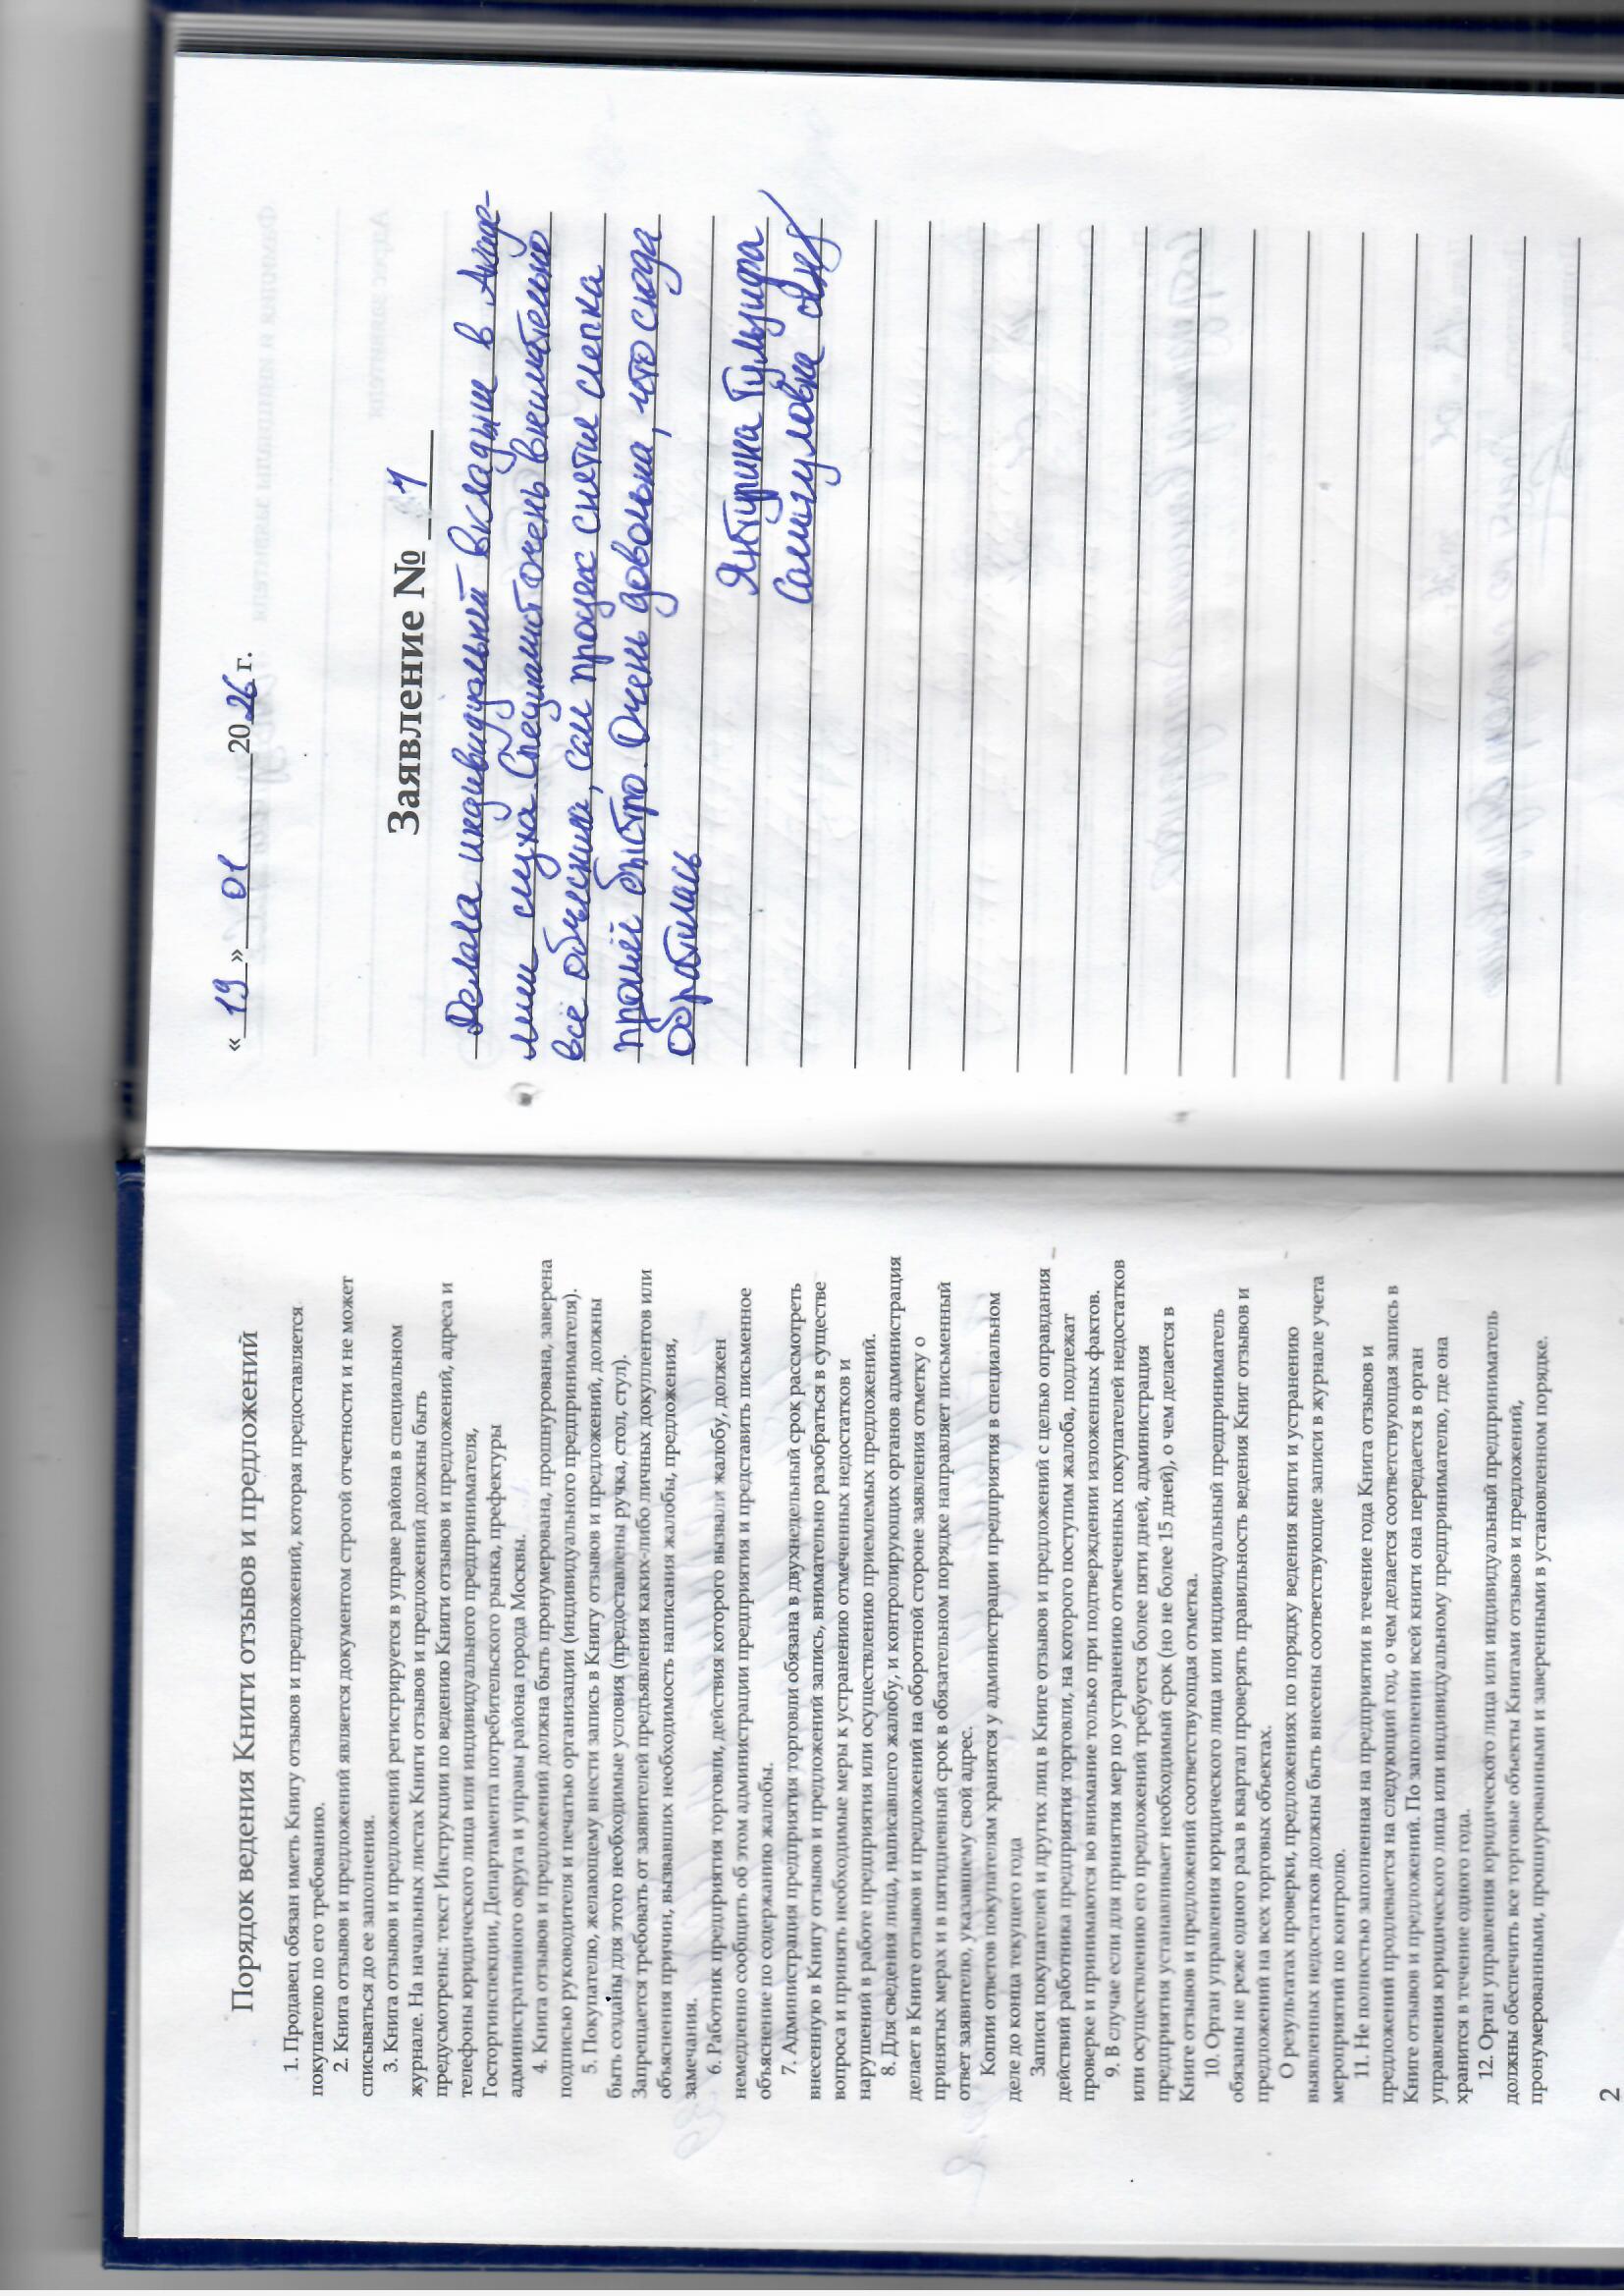 Порядок ведения Книги отзывов и предложений
1. Продавец обязан иметь Книгу отзывов и предложений, которая предоставляется
покупателю по его требованию.
2. Книга отзывов и предложений является документом строгой отчетности и не может
списываться до ее заполнения.
3. Книга отзывов и предложений регистрируется в управе района в специальном
журнале. На начальных листах Книги отзывов и предложений должны быть
предусмотрены: текст Инструкции по ведению Книги отзывов и предложений, адреса и
телефоны юридического лица или индивидуального предпринимателя,
Госторгинспекции, Департамента потребительского рынка, префектуры
административного округа и управы района города Москвы.
4. Книга отзывов и предложений должна быть пронумерована, прошнурована, заверена
подписью руководителя и печатью организации (индивидуального предпринимателя).
5. Покупателю, желающему внести запись в Книгу отзывов и предложений, должны
быть созданы для этого необходимые условия (предоставлены ручка, стол, стул).
Запрещается требовать от заявителей предъявления каких-либо личных документов или
объяснения причин, вызвавших необходимость написания жалобы, предложения,
замечания.
6. Работник предприятия торговли, действия которого вызвали жалобу, должен
немедленно сообщить об этом администрации предприятия и представить письменное
объяснение по содержанию жалобы.
7. Администрация предприятия торговли обязана в двухнедельный срок рассмотреть
внесенную в Книгу отзывов и предложений запись, внимательно разобраться в существе
вопроса и принять необходимые меры к устранению отмеченных недостатков и
нарушений в работе предприятия или осуществлению приемлемых предложений.
8. Для сведения лица, написавшего жалобу, и контролирующих органов администрация
делает в Книге отзывов и предложений на оборотной стороне заявления отметку о
принятых мерах и в пятидневный срок в обязательном порядке направляет письменный
ответ заявителю, указавшему свой адрес.
Копии ответов покупателям хранятся у администрации предприятия в специальном
деле до конца текущего года
Записи покупателей и других лиц в Книге отзывов и предложений с целью оправдания
действий работника предприятия торговли, на которого поступим жалоба, подлежат
проверке и принимаются во внимание только при подтверждении изложенных фактов.
9. В случае если для принятия мер по устранению отмеченных покупателей недостатков
или осуществлению его предложений требуется более пяти дней, администрация
предприятия устанавливает необходимый срок (но не более 15 дней), о чем делается в
Книге отзывов и предложений соответствующая отметка.
10. Орган управления юридического лица или индивидуальный предприниматель
обязаны не реже одного раза в квартал проверять правильность ведения Книг отзывов и
предложений на всех торговых объектах.
О результатах проверки, предложениях по порядку ведения книги и устранению
выявленных недостатков должны быть внесены соответствующие записи в журнале учета
мероприятий по контролю.
11. Не полностью заполненная на предприятии в течение года Книга отзывов и
предложений продлевается на следующий год, о чем делается соответствующая запись в
Книге отзывов и предложений. По заполнении всей книги она передается в орган
управления юридического лица или индивидуальному предпринимателю, где она
хранится в течение одного года.
12. Орган управления юридического лица или индивидуальный предприниматель
должны обеспечить все торговые объекты Книгами отзывов и предложений,
пронумерованными, прошнурованными и заверенными в установленном порядке.
2
« 19 » 01 2026 г.
Заявление № 1
Делала индивидуальный вкладыш в Акаде-
мии слуха. Специалист очень внимательно
всё объяснила, сам процесс снятие слепка
прошёл быстро. Очень довольна, что сюда
обратилась
Янтурина Гульнура
Самигулловна